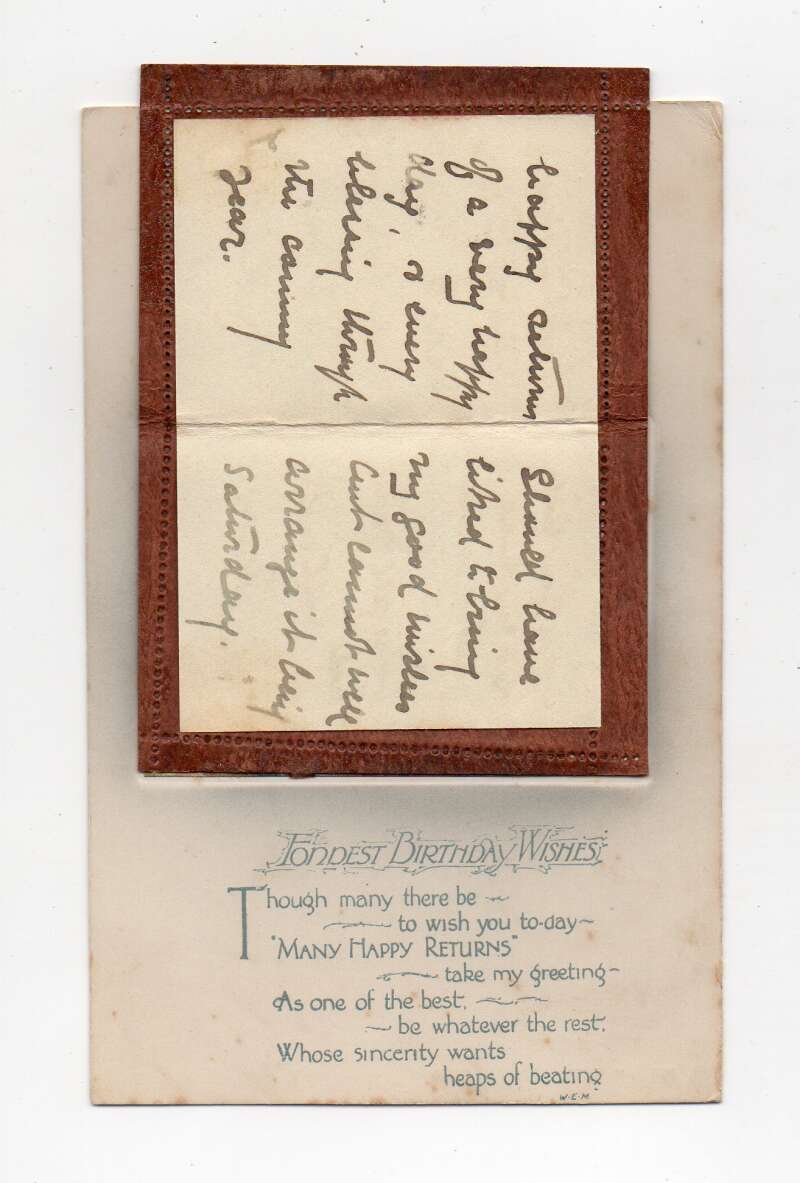 happy returns
of a very happy
day, & every
blessing through
the coming
year.
Should have
liked to bring
my good wishes
but cannot well
arrange it being
Saturday.
FONDEST BIRTHDAY WISHES.
Though many there be
to wish you to-day
"MANY HAPPY RETURNS"
take my greeting
As one of the best,
be whatever the rest,
Whose sincerity wants
heaps of beating
W.E.M